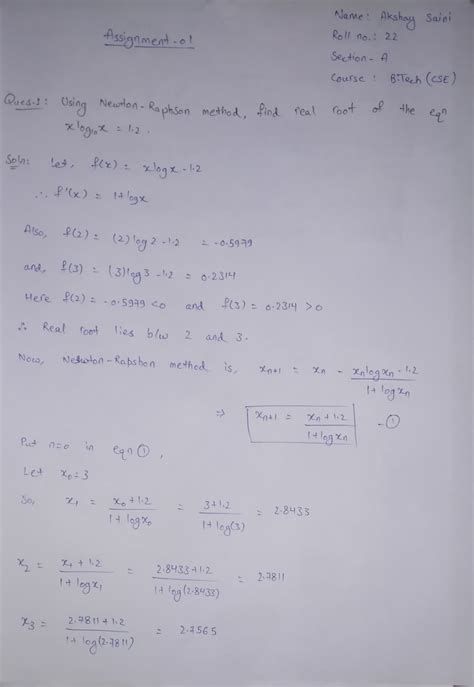 Name: Akshay Saini
Roll no.: 22
Section - A
Course : B.Tech (CSE)
Assignment - 01
Ques-1: Using Newton-Raphson method, find real root of the eqn
x log₁₀x = 1.2.
Soln: Let, f(x) = xlogx - 1.2
∴ f'(x) = 1+logx
Also, f(2) = (2)log2 - 1.2 = -0.5979
and, f(3) = (3)log3 - 1.2 = 0.2314
Here f(2) = -0.5979 <0 and f(3) = 0.2314 >0
∴ Real root lies b/w 2 and 3.
Now, Newton-Rapshon method is, xₙ₊₁ = xₙ - (xₙlogxₙ - 1.2)/(1+logxₙ)
⇒ xₙ₊₁ = (xₙ+1.2)/(1+logxₙ) -①
Put n=0 in eqn ①,
Let x₀=3
So, x₁ = (x₀+1.2)/(1+logx₀) = (3+1.2)/(1+log(3)) = 2.8433
x₂ = (x₁+1.2)/(1+logx₁) = (2.8433+1.2)/(1+log(2.8433)) = 2.7811
x₃ = (2.7811+1.2)/(1+log(2.7811)) = 2.7565